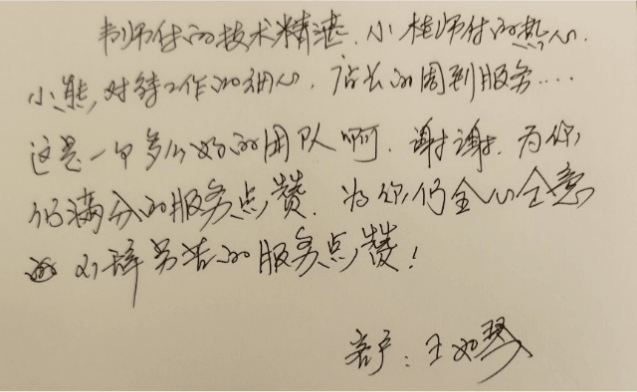 韦师付的技术精湛.小桂师付的热心.
小熊,对待工作的细心,店长的周到服务....
这是一个多么好的团队啊.谢谢.为你
们满分的服务点赞.为你们全心全意
不辞劳苦的服务点赞!
客户:王如琴